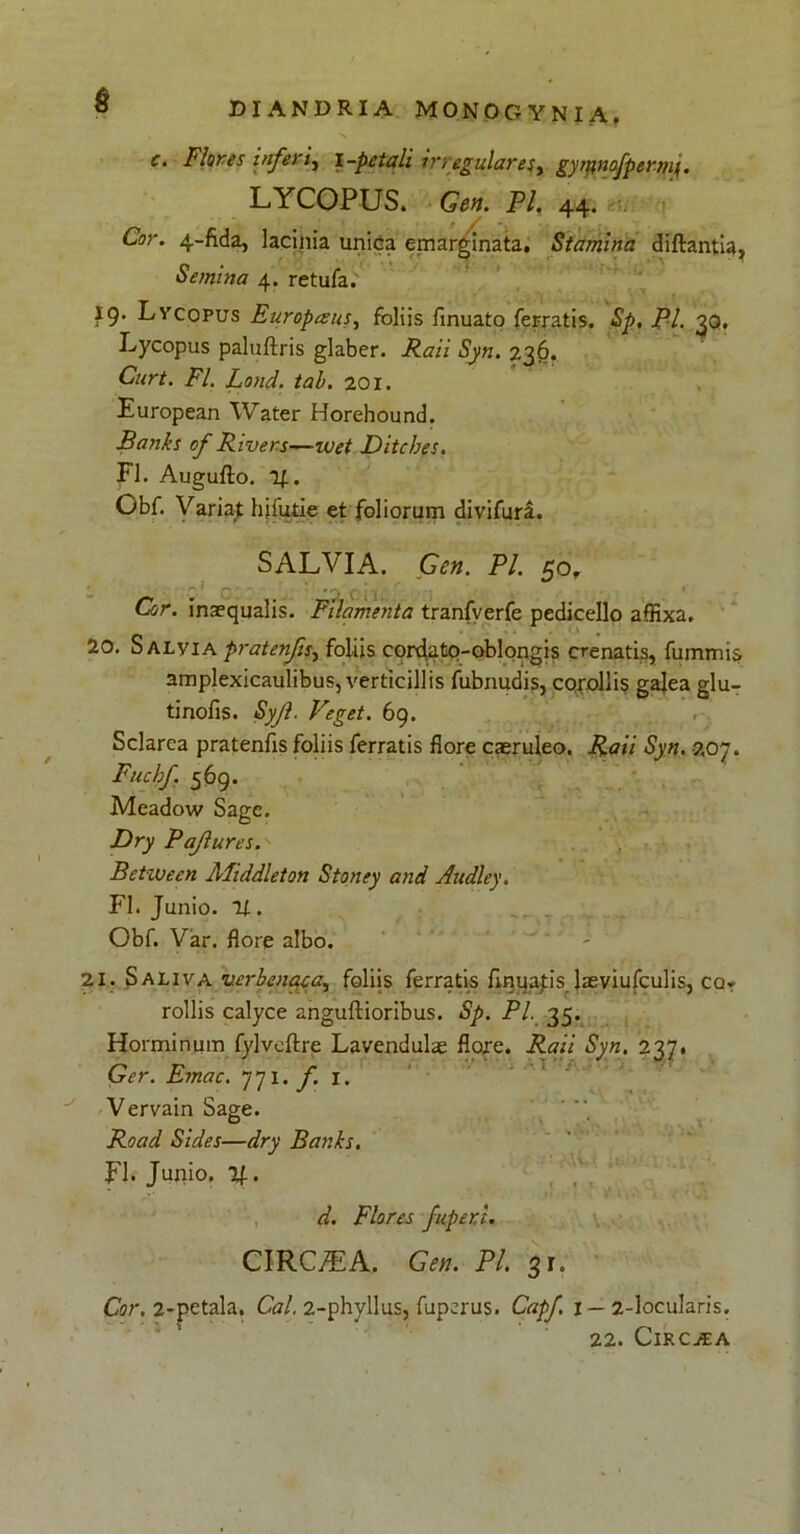 8
DIANDRIA MONOGYNIA.
c. Flores inferi, 1-petali irregulares, gymnoſpermi.
LYCOPUS. Gen. Pl. 44.
Cor. 4-fida, lacinia unica emarginata. Stamina diſtantia,
Semina 4. retuſa.
19. Lycopus Europæus, foliis ſinuato ſerratis. Sp. Pl. 30.
Lycopus paluſtris glaber. Raii Syn. 236.
Curt. Fl. Lond. tab. 201.
European Water Horehound.
Banks of Rivers—wet Ditches.
Fl. Auguſto. ♃.
Obſ. Variat hiſutie et foliorum diviſurâ.
SALVIA. Gen. Pl. 50.
Cor. inæqualis. Filamenta tranſverſe pedicello affixa.
20. Salvia pratenſis, foliis cordato-oblongis crenatis, ſummis
amplexicaulibus, verticillis ſubnudis, corollis galea glu-
tinoſis. Syſt. Veget. 69.
Sclarea pratenſis foliis ſerratis flore cæruleo. Raii Syn. 207.
Fuchſ. 569.
Meadow Sage.
Dry Paſtures.
Between Middleton Stoney and Audley.
Fl. Junio. ♃.
Obſ. Var. flore albo.
21. Saliva verbenaca, foliis ſerratis ſinuatis læviuſculis, co-
rollis calyce anguſtioribus. Sp. Pl. 35.
Horminum ſylveſtre Lavendulæ flore. Raii Syn. 237.
Ger. Emac. 771. f. 1.
Vervain Sage.
Road Sides—dry Banks.
Fl. Junio. ♃.
d. Flores ſuperi.
CIRCÆA. Gen. Pl. 31.
Cor. 2-petala. Cal. 2-phyllus, ſuperus. Capſ. 1—2-locularis.
22. Circæa